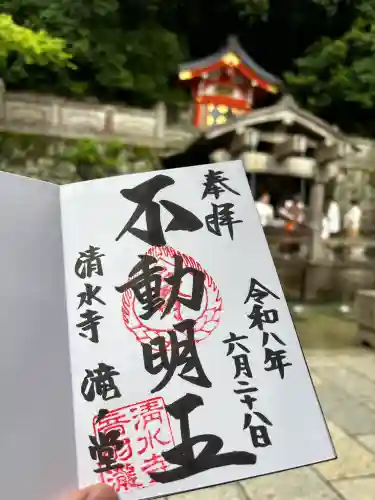 奉拝
令和八年
六月二十八日
不動明王
清水寺
滝之堂
清水寺
音羽瀧